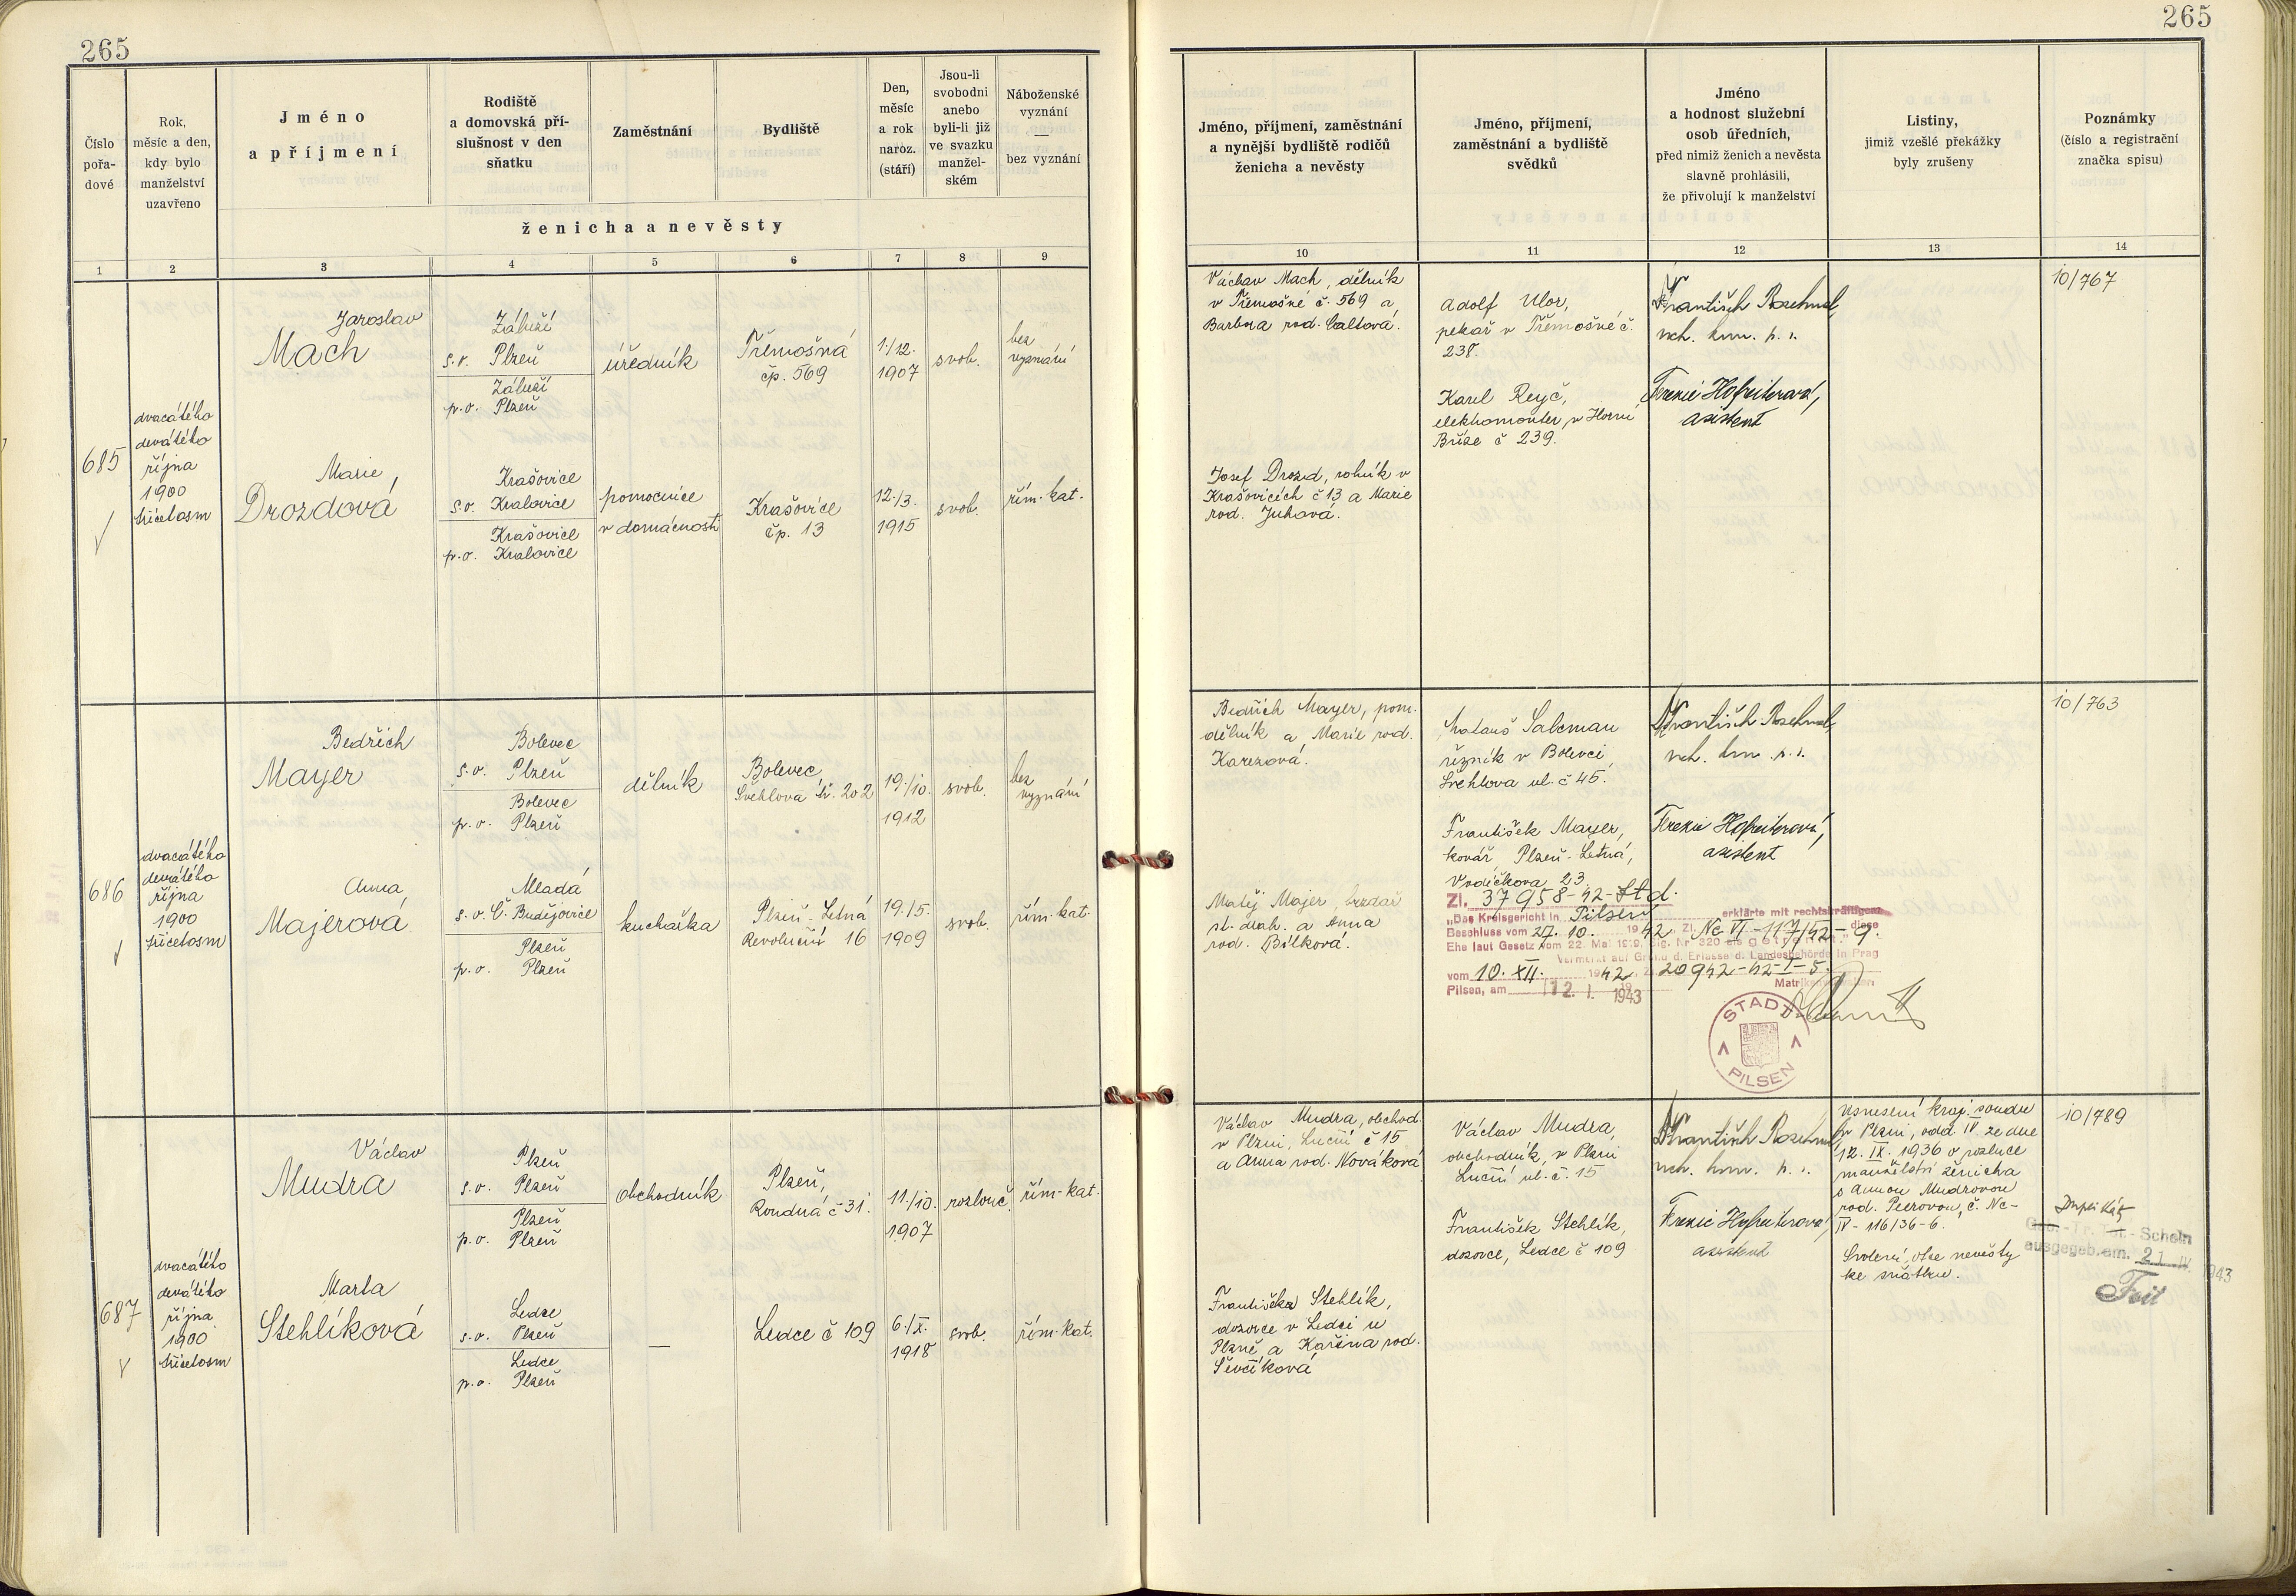 265
265
Číslo
pořa-
dové
Rok,
měsíc a den,
kdy bylo
manželství
uzavřeno
Jméno
a příjmení
Rodiště
a domovská pří-
slušnost v den
sňatku
Zaměstnání
Bydliště
Den,
měsíc
a rok
naroz.
(stáří)
Jsou-li
svobodni
anebo
byli-li již
ve svazku
manžel-
ském
Náboženské
vyznání
—
bez vyznání
ženicha a nevěsty
Jméno, příjmení, zaměstnání
a nynější bydliště rodičů
ženicha a nevěsty
Jméno, příjmení,
zaměstnání a bydliště
svědků
Jméno
a hodnost služební
osob úředních,
před nimiž ženich a nevěsta
slavně prohlásili,
že přivolují k manželství
Listiny,
jimiž vzešlé překážky
byly zrušeny
Poznámky
(číslo a registrační
značka spisu)
1 2 3 4 5 6 7 8 9
10 11 12 13 14
685
dvacátého
devátého
října
1900
třicetosm
Jaroslav
Mach
Záluží
s.o. Plzeň
Záluží
p.o. Plzeň
úředník
Třemošná
čp. 569
1./12.
1907
svob.
bez
vyznání
Marie,
Drozdová
Krašovice
s.o. Kralovice
Krašovice
p.o. Kralovice
pomocnice
v domácnosti
Krašovice
čp. 13
12./3.
1915
svob.
řím.-kat.
Václav Mach, dělník
v Třemošné č. 569 a
Barbora rod.
Josef Drozd, rolník v
Krašovicích č 13 a Marie
rod. Juhová.
Adolf Ulor,
pekař v Třemošné č.
238.
Karel Reyč,
elektromonter, v Horní
Bříze č 239.
František
asistent
10/767
686
dvacátého
devátého
října
1900
třicetosm
Bedřich
Mayer
Bolevec
s.o. Plzeň
Bolevec
p.o. Plzeň
dělník
Bolevec,
Švehlova tř. 202
19./10.
1912
svob.
bez
vyznání
Anna
Majerová
Mladá
s.o. Č. Budějovice
Plzeň
p.o. Plzeň
kuchařka
Plzeň - Letná
Revoluční 16
19./5.
1909
svob.
řím.-kat.
Bedřich Mayer, pom.
dělník a Marie rod.
Karezová.
Matěj Majer,
st. drah. a Anna
rod. Bílková.
Matouš Salcman
řezník v Bolevci,
Švehlova ul. č 45.
František Mayer,
kovář, Plzeň - Letná,
Vodičkova 23
František
asistent
Zl. 37958-42-Std.
"Das Kreisgericht in Pilsen erklärte mit rechtskräftigem
Beschluss vom 27. 10. 1942 Zl. Nc VI - 117/42 - 9. diese
Ehe laut Gesetz vom 22. Mai 1919, Slg. Nr. 320 als getrennt."
Vermerkt auf Grund d. Erlasse d. Landesbehörde in Prag
vom 10. XII. 1942, Zl. 20942-42-I-5.
Pilsen, am 12. I. 1943
STADT
PILSEN
10/763
687
dvacátého
devátého
října
1900
třicetosm
Václav
Mudra
Plzeň
s.o. Plzeň
Plzeň
p.o. Plzeň
obchodník
Plzeň,
Koudná č 31.
11./10.
1907
rozlouč.
řím-kat.
Marta
Stehlíková
Ledce
s.o. Plzeň
Ledce
p.o. Plzeň
—
Ledce č 109
6./X.
1918
svob.
řím-kat.
Václav Mudra, obchod.
v Plzni, Luční č 15
a Anna rod. Nováková
Františka Stehlík,
dozorce v Ledci u
Plzně a Kateřina rod.
Ševčíková
Václav Mudra,
obchodník, v Plzni
Luční ul. č. 15
František Stehlík,
dozorce, Ledce č 109
František
asistent
Usnesení kraj. soudu
v Plzni, odd. IV ze dne
12. IX. 1936 o rozluce
manželství ženicha
s Annou Mudrovou
rod. Peerovou, č. Nc-
IV - 116/36-6.
Svolení otce nevěsty
ke sňatku.
10/789
Duplikát
-Schein
ausgegeb. am. 21. IV. 1943